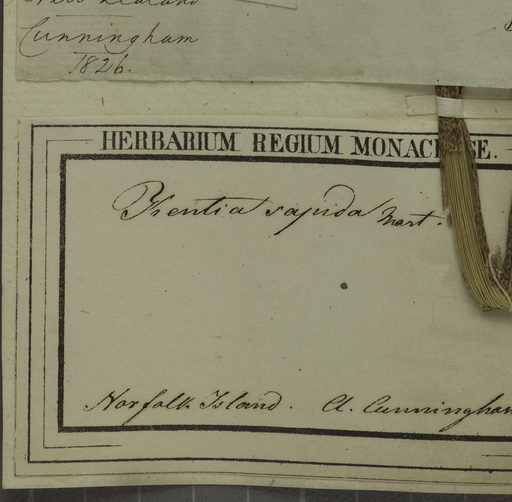 New Zealand
Cunningham
1826.
HERBARIUM REGIUM MONACENSE.
Kentia sapida Mart.
Norfolk Island. A. Cunningham